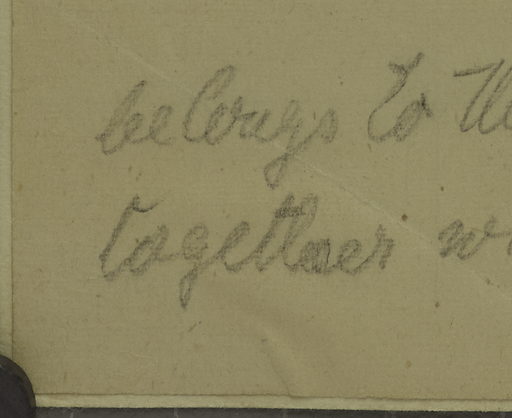 belongs to
together